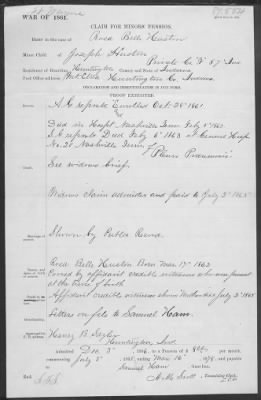 Ft Wayne
WAR OF 1861.
CLAIM FOR MINORS' PENSION.
Brief in the case of Rosa Belle Huston
Minor Child of Joseph Huston
Private Co. "B" 47 Ind
Residence of Guardian, Huntington County and State of Indiana
Post Office address Huntington Co. Indiana
DECLARATION AND IDENTIFICATION IN DUE FORM.
PROOF EXHIBITED.
A.G. reports Enrolled Oct 28 1861
and
Died in Hospt Nashville Tenn Feby 1863
S.G. reports Died Feby 6 1863 at General Hosp
No. 21 Nashville Tenn of "Pleuro Pneumonia"
See widows brief.
Widows claim admitted and paid to July 3" 1865
Shown by Public Record
Rosa Belle Huston Born Mar 17" 1862
Proved by affidavit credible witnesses who were present
at the time of birth
Affidavit credible witnesses show Widow died July 3" 1865
Letters on file to Samuel Ham
Henry B. Sayler
Huntington Ind.
Admitted Dec 3" 1866, to a Pension of $8 per month,
commencing July 3" 1865, ending Mar 16" 1878, and payable
Samuel Ham
Examining Clerk.